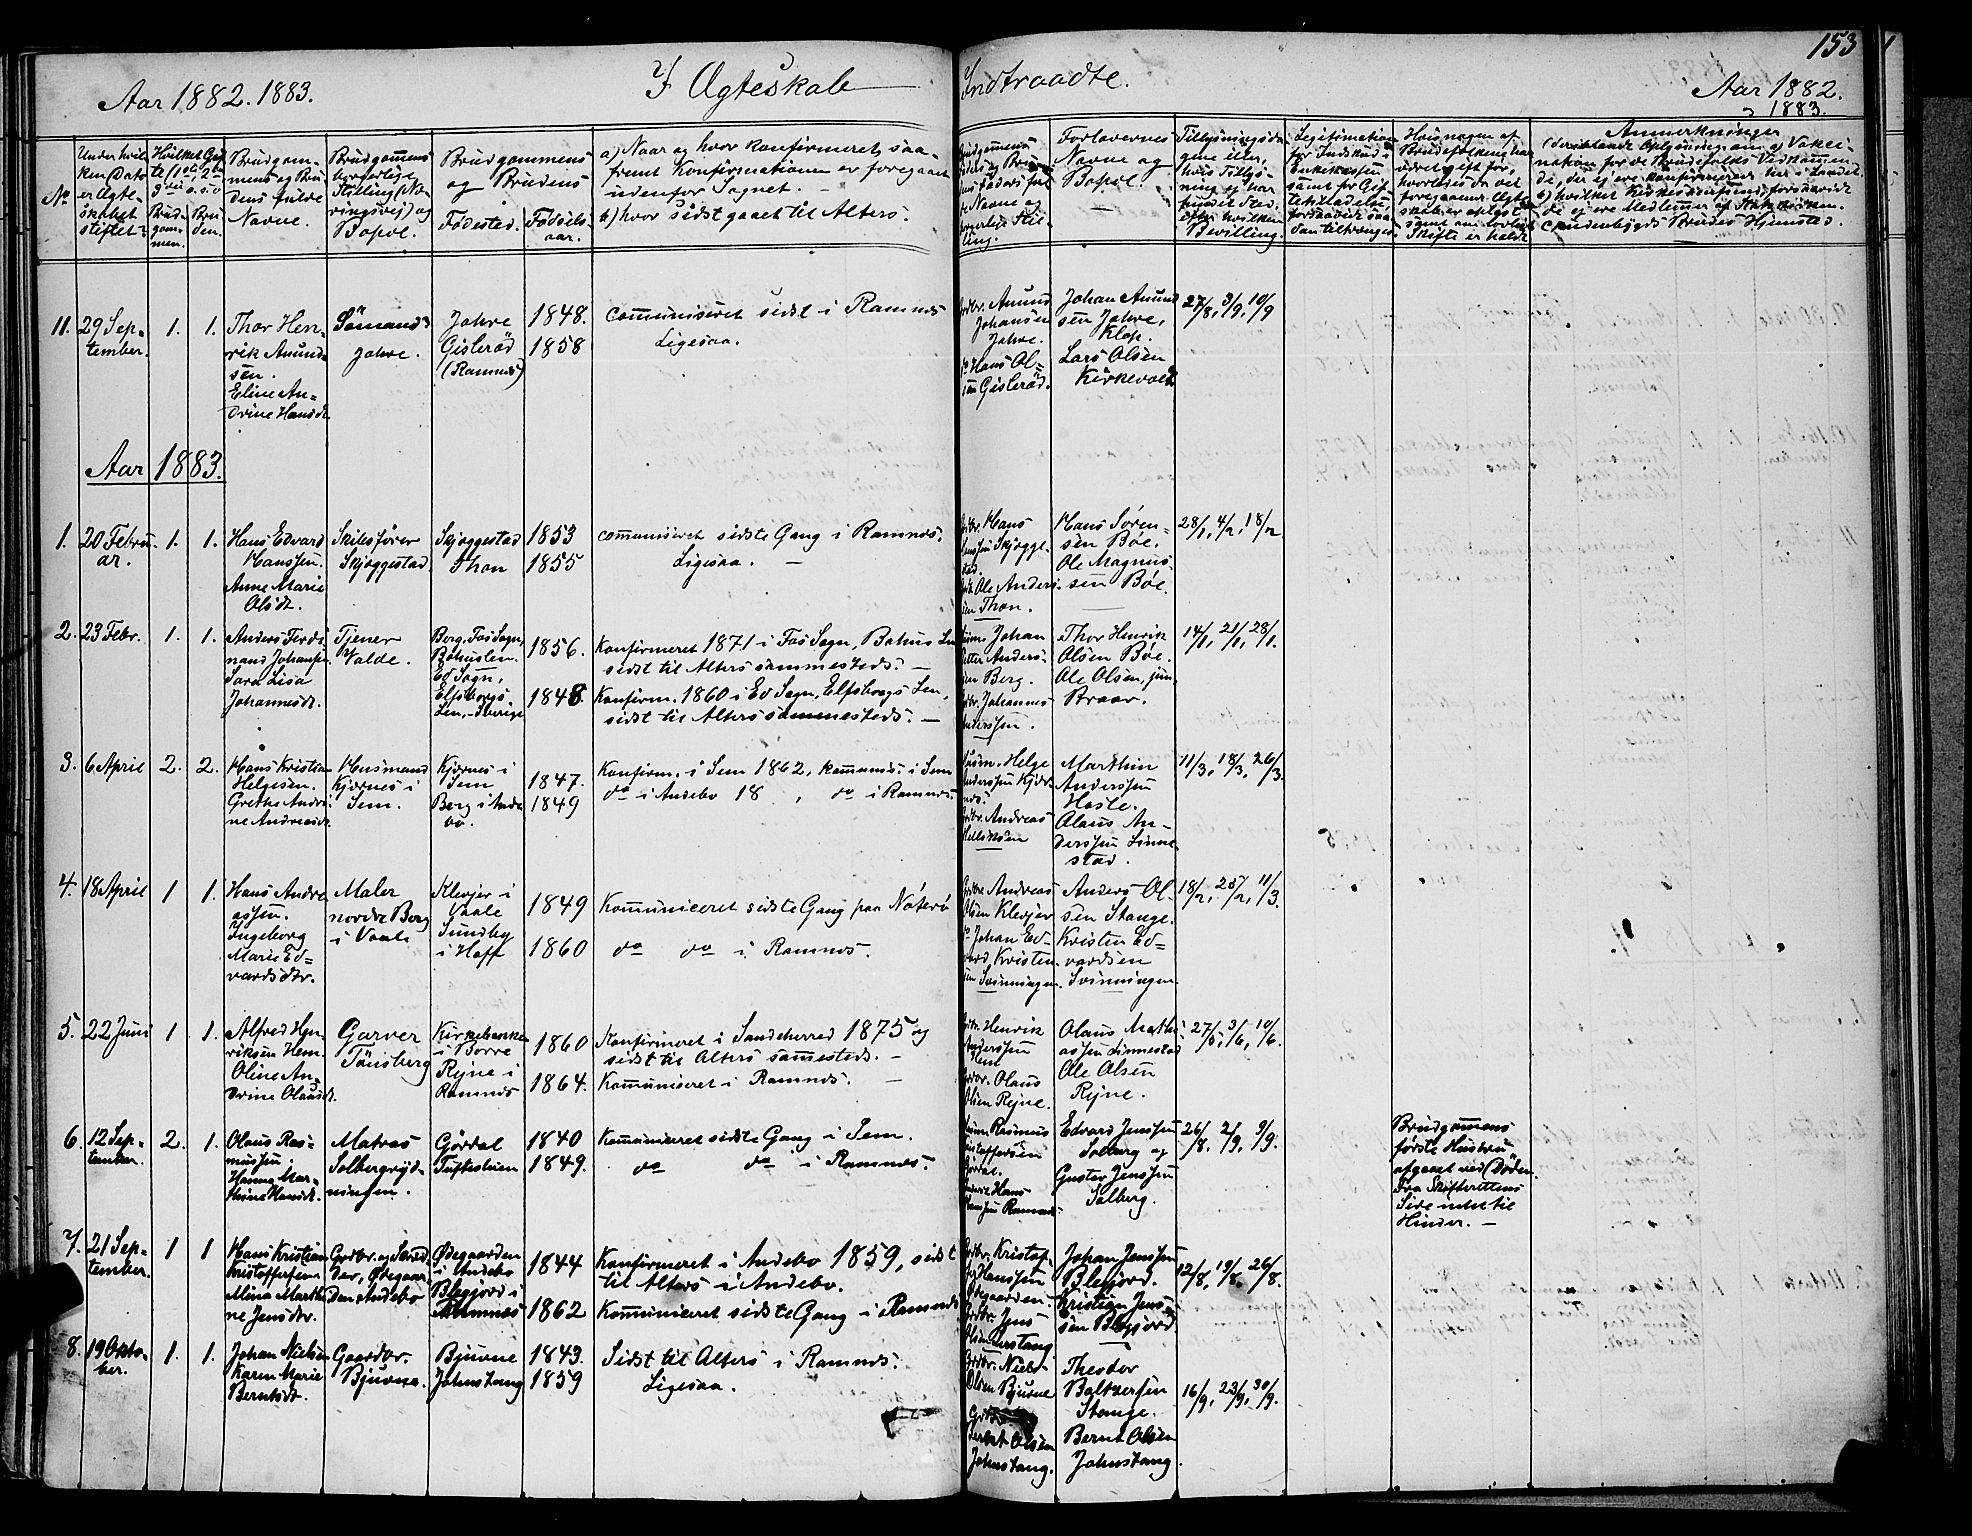 153
Aar 1882. 1883.
I Ægteskab
Indtraadte.
Aar 1882.
1883.
No
Under hvil-
ken Dato
er Ægte-
skabet
stiftet?
Brud-
gom-
men.
Bru-
den.
Brudgom-
mens og Bru-
dens fulde
Navne.
Brudgommens
borgerlige
Stilling (Næ-
ringsvej) og
Bopæl.
Brudgommens
og Brudens
Fødested.
Fødsels-
aar.
a) Naar og hvor konfirmeret, saa-
fremt Konfirmationen er foregaaet
udenfor Sognet.
b) hvor sidst gaaet til Alters.
Forlovernes
Navne og
Bopæl.
Bevilling.
Anmerkninger
11. 29 Sep-
tember.
1. 1.
Thor Hen-
rik Amund-
sen.
Eline An-
drine Hansdt.
Sømand
Jahre.
Jahre
Gislerød
(Ramnes)
1848.
1858
communiseret sidst i Ramnes
Ligesaa.
Amund
Johansen
Jahre.
Hans Ol-
sen Gislerød.
Johan Amund
sen Jahre,
Klop.
Lars Olsen
Kirkevold
27/8, 3/9, 10/9
Aar 1883.
1. 20 Febru-
ar.
1. 1.
Hans Edvard
Hanssen.
Anne Marie
Olsdt.
Skibsfører
Skjøggestad.
Skjøggestad
Thon
1853
1855
communiseret sidste Gang i Ramnes.
Ligesaa. —
Hans
Hanssen Skjøgge-
stad.
Ole Anders-
sen Thon.
Hans Søren-
sen Bøe.
Ole Magnus-
sen Bøe.
28/1, 4/2, 18/2
2. 23 Febr.
1. 1.
Anders Ferdi
nand Johansen
Sara Lisa
Johannesdt.
Tjener
Valde.
Borg, Fos Sogn,
Bohuslen.
Ed Sogn,
Elfsborgs
Len, Sverige
1856.
1848.
Konfirmeret 1871 i Fos Sogn, Bohus Len
sidst til Alters sammesteds. —
Konfirm. 1860 i Ed Sogn, Elfsborgs Len,
sidst til Alters sammesteds. —
Johan
Petter Anders-
sen Berg.
Johannes
Anderssen.
Thor Henrik
Olsen Bøe.
Ole Olsen, jun
Braar.
14/1, 21/1, 28/1.
3. 6 April
2. 2.
Hans Kristian
Helgesen.
Grethe Andri-
ne Andreasdt.
Husmand
Kjærnes i
Sem.
Kjærnes i
Sem
Berg i Ande
bo.
1847.
1849
Konfirm. i Sem 1862, kommunis. i Sem
do i Andebo 18 , do i Ramnes.
Helge
Anderssen Kjær-
nes.
Andreas
Marthin
Anderssen
Hasle.
Olaus An-
derssen Linne-
stad.
11/3, 18/3, 26/3.
4. 18 April
1 1.
Hans Andre
assen.
Ingeborg
Marie Ed-
vardsdtr.
Maler
nordre Berg
i Vaale
Klevjer i
Vaale
Sundby
i Hoff
1849
1860
Kommuniceret sidste Gang paa Nøterø
do do i Ramnes.
Andreas
Olsen Klevjer
Johan Ed-
vard Kristen-
sen Svinningen.
Anders Ol-
sen Stange.
Kristen Ed-
vardsen
Svinningen
18/2, 25/2, 11/3.
5. 22 Juni
1 1.
Alfred Hen-
riksen Hem.
Oline An-
drine Olausdt.
Garver
Tønsberg
Kirkebakken
i Borre
Rejne i
Ramnes
1860
1864.
Konfirmeret i Sandeherred 1875 og
sidst til Alters sammesteds. —
Kommuniseret i Ramnes. —
Henrik
Anderssen
Hem
Olaus
Olsen Rejne.
Olaus Mathi-
assen Linnestad
Ole Olsen
Rejne.
27/5, 3/6, 10/6.
6. 12 Sep-
tember.
2. 1.
Olaus Ras-
mussen.
Hanna Mar-
thina Hansdt.
Matros
Solbergrød-
ningen.
Gørdal
Tufteskien
1840
1849.
Kommuniseret sidste Gang i Sem.
do do i Ramnes.
Rasmus
Kristoffersen
Gørdal.
Hans
Hanssen Ramnes
Edvard Jenssen
Solberg og
Gustav Jenssen
Solberg.
26/8, 2/9, 9/9.
Brudgommens
første Hustru
afgaaet ved Døden
Fra Skifterettens
Side intet til
Hinder. —
7. 21 Sep-
tember.
1 1
Hans Kristian
Kristoffersen
Mina Marthi
ne Jensdtr.
Grdbr. og Smed
der, Ødegaar-
den Andebo
Ødegaarden
i Andebo
Blegjord i
Ramnes
1844
1862
Konfirmeret i Andebo 1859, sidst
til Alters i Andebo.
Kommuniceret sidste Gang i Ramnes.
Kristof-
fer Hanssen
Ødegaarden.
Jens
Olsen
Johan Jenssen
Blegjord.
Kristian Jens-
sen Blegjord
12/8, 19/8, 26/8.
8. 19 Okto-
ber.
1. 1.
Johan Nielsen
Karen Marie
Berntsdt.
Gaardbr.
Bjuvne.
Bjuvne
Johnstang
1843.
1859
Sidst til Alters i Ramnes.
Ligesaa.
Niels
Olsen Bjuvne
Bernt Olsen
Johnstang.
Theodor
Baltzersen
Stange.
Bernt Olsen
Johnstang
16/9, 23/9, 30/9.